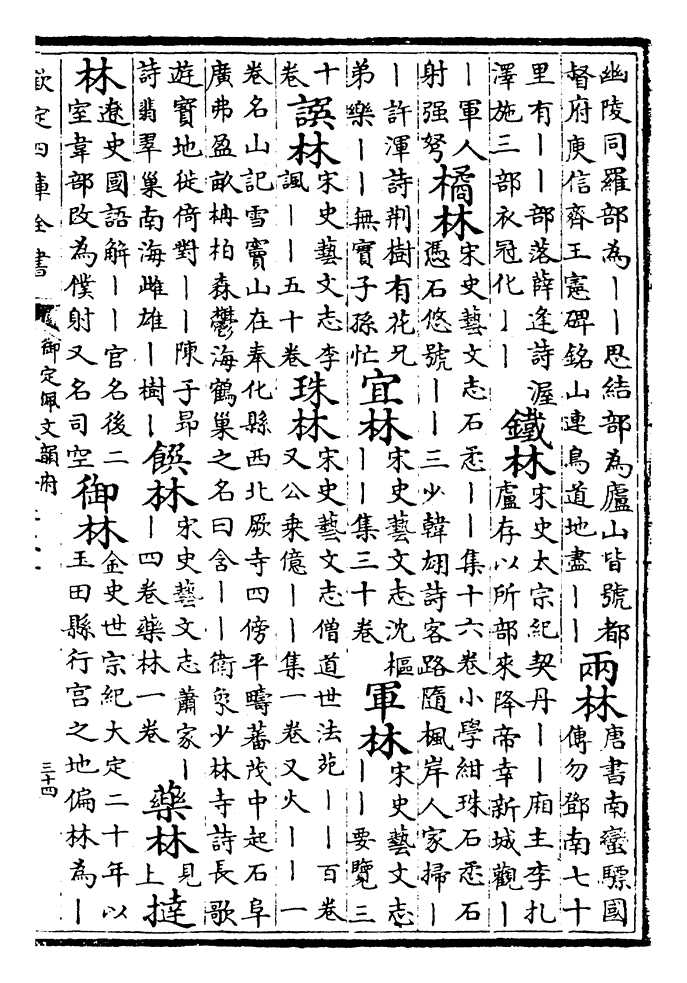 幽陵同羅部為丨丨思結部為廬山皆號都
督府庾信齊王憲碑銘山連鳥道地盡丨丨
兩林
唐書南蠻驃國
傳勿鄧南七十
里有丨丨部落薛逢詩渥
澤施三部衣冠化丨丨
鐵林
宋史太宗紀契丹丨丨廂主李扎
盧存以所部來降帝幸新城觀丨
丨軍人
射强弩
橘林
宋史藝文志石悉丨丨集十六卷小學紺珠石悉石
憑石悠號丨丨三少韓翃詩客路隨楓岸人家掃丨
丨許渾詩荆樹有花兄
弟樂丨丨無實子孫忙
宜林
宋史藝文志沈樞
丨丨集三十卷
軍林
宋史藝文志
丨丨要覽三
十
卷
誤林
宋史藝文志李
諷丨丨五十卷
珠林
宋史藝文志僧道世法苑丨丨百卷
又公乘億丨丨集一卷又火丨丨一
卷名山記雪竇山在奉化縣西北厥寺四傍平疇蕃茂中起石阜
廣弗盈畝栴柏森鬱海鶴巢之名曰含丨丨衛象少林寺詩長歌
遊寳地徙倚對丨丨陳子昻
詩翡翠巢南海雌雄丨樹丨
饌林
宋史藝文志蕭家丨
丨四卷藥林一卷
藥林
見
上
撻
林
遼史國語解丨丨官名後二
室韋部改為僕射又名司空
御林
金史世宗紀大定二十年以
玉田縣行宫之地偏林為丨
欽定四庫全書
御定佩文韻府
三十四